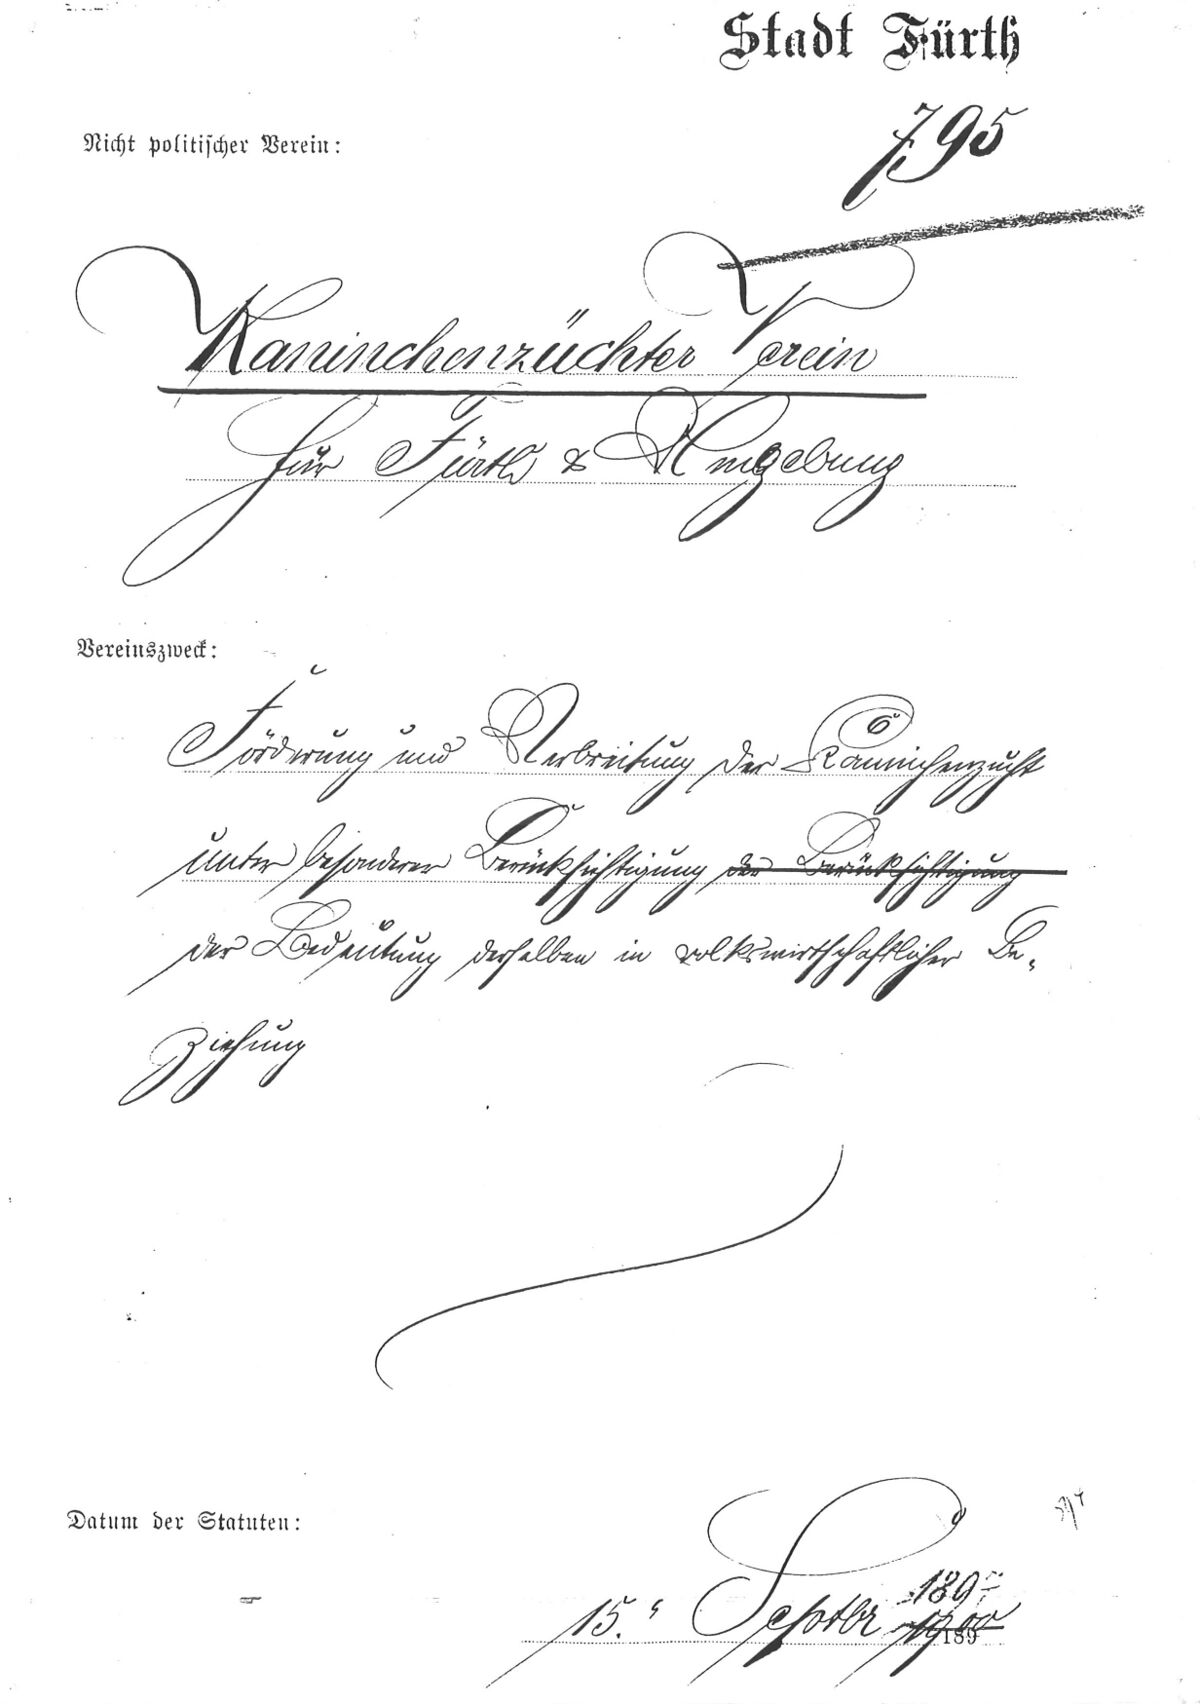 Stadt Fürth
Nicht politischer Verein:
Kaninchenzüchter Verein
für Fürth & Umgebung
Vereinszweck:
Förderung und Verbreitung der Kaninchenzucht
unter besonderer Berücksichtigung der Berücksichtigung
der Bedeutung derselben in volkswirthschaftlicher Be-
ziehung
Datum der Statuten:
15. Septbr 1900 189